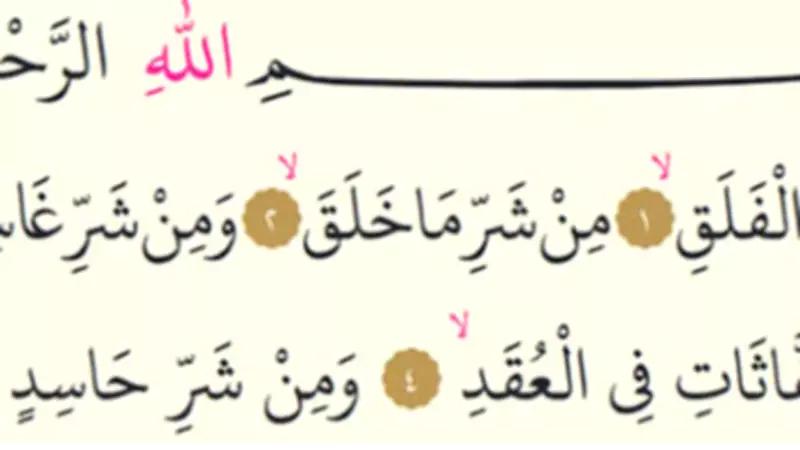 ـمِ اللّٰهِ الرَّحْـ
الْفَلَقِ ۙ ١ مِنْ شَرِّ مَا خَلَقَ ۙ ٢ وَمِنْ شَرِّ غَاسِـ
ـفَّاثَاتِ فِى الْعُقَدِ ۙ ٤ وَمِنْ شَرِّ حَاسِدٍ